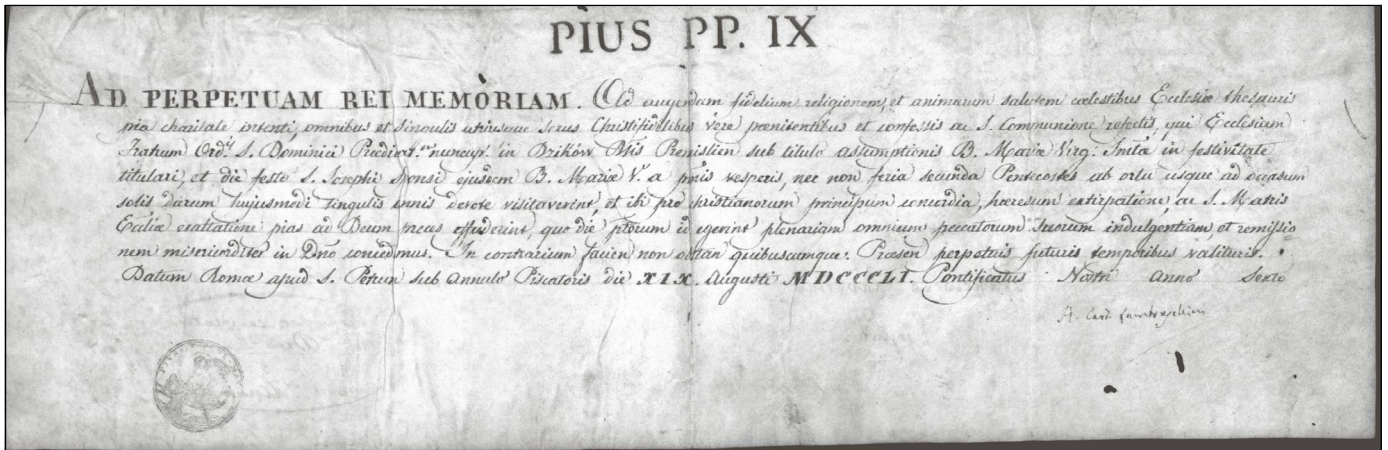 PIUS PP. IX
AD PERPETUAM REI MEMORIAM. Ad augendam fidelium religionem, et animarum salutem coelestibus Ecclesiæ thesauris
pia charitate intenti, omnibus et singulis utriusque sexus Christifidelibus vere pœnitentibus et confessis ac S. Communione refectis, qui Ecclesiam
Fratrum Ord. S. Dominici Prædicat. nuncup. in Dzików Premislien sub titulo assumptionis B. Mariæ Virg. in festivitate
titulari, et die festo S. Josephi Sponsi ejusdem B. Mariæ V. a pmis vesperis, nec non feria secunda Pentecostes ab ortu usque ad occasum
solis dierum hujusmodi singulis annis devote visitaverint, et ibi pro christianorum principum concordia, hæresum extirpatione, ac S. Matris
Eccliæ exaltatione pias ad Deum preces effuderint, quo die ptorum id egerint plenariam omnium peccatorum suorum indulgentiam, et remissio-
nem misericorditer in Dno concedimus. In contrarium facien non obstan quibuscumque. Præsen perpetuis futuris temporibus valituris.
Datum Romæ apud S. Petrum sub annulo Piscatoris die XIX. Augusti MDCCCLI. Pontificatus Nostri anno Sexto
A. Card. Lambruschini